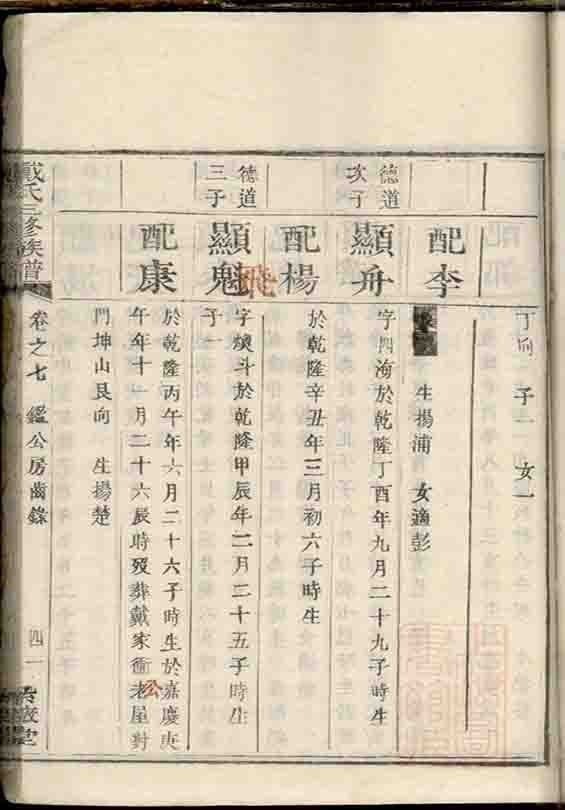 丁向 子一 女一
配李
生揚浦 女適彭
德道
次子
顯舟
字四 於乾隆丁酉年九月二十九子時生
配楊
於乾隆辛丑年三月初六子時生
德道
三子
顯魁
飛
字 斗於乾隆甲辰年二月二十五子時生
子一
配康
於乾隆丙午年六月二十六子時生於嘉慶庚
午年十一月二十六辰時歿葬戴家衝老屋對
公
門坤山艮向 生揚楚
戴氏三修族譜
卷之七 鑑公房齒錄
四一